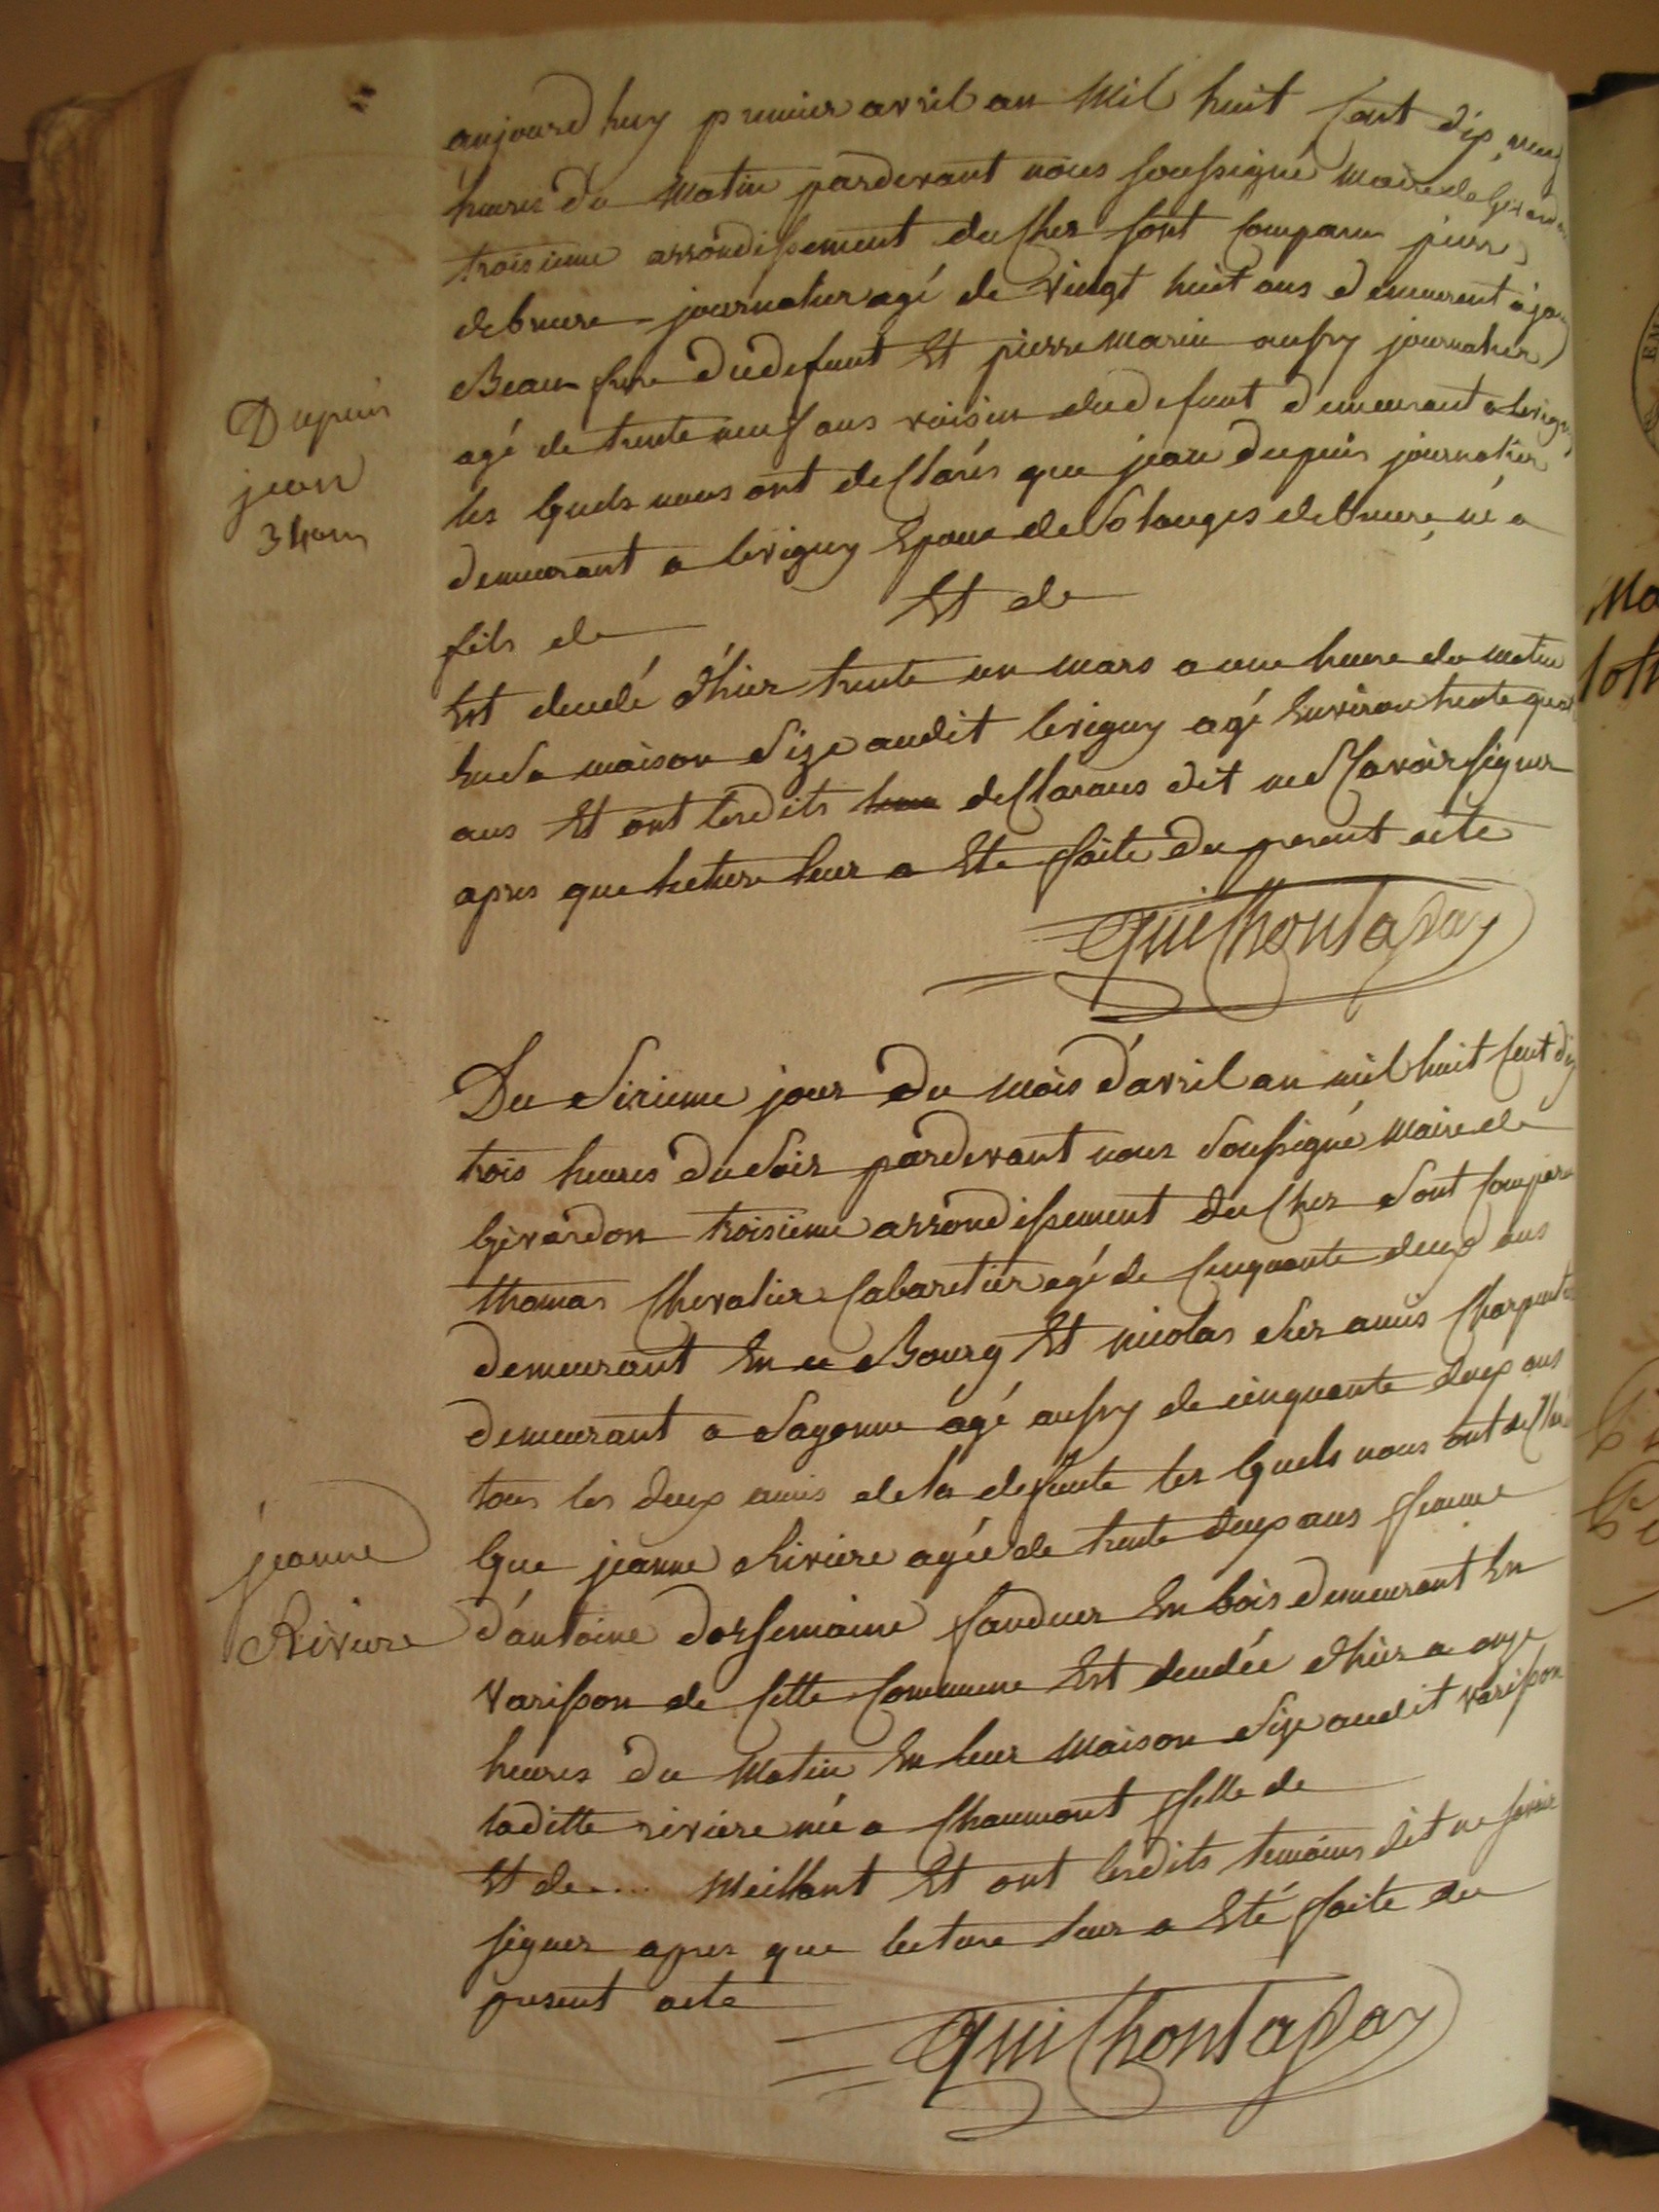 aujourd huy premier avril an mil huit Cent dix, neuf
heures du matin pardevant nous soussigné maire de Givardon
troisieme arrondissement du Cher sont Comparu pierre
debruere journalier agé de vingt huit ans demeurent a
Beau frere dudefunt Et pierre marin aussy journalier
agé de trente neuf ans voisin dudefunt demeurant a levigny
les lquels nous ont desClarés que jean dupuis journalier
demeurant a levigny Epoux de Solanges debruere, né a
fils de Et de
Est decedé d'hier trente un mars a une heure du matin
En Sa maison Size audit levigny agé Environ trente quatre
ans Et ont lesdits desClarans dit ne Scavoir signer
apres que lecture leur a Ete faite du present acte
Dupuis
jean
34 ans
Guilhontaday
Du Sixieme jour du mois d'avril an mil huit Cent dix
trois heures du Soir pardevant nous Soussigné maire de
Givardon troisieme arrondissement du Cher Sont Comparu
thomas Chevalier Cabaretier agé de Cinquante deux ans
demeurant En ce Bourg Et nicolas des amis Charpentier
demeurant a Sagonne agé aussy de cinquante deux ans
tous les deux amis de la defunte les lquels nous ont desClaré
que jeanne Riviere agée de trente deux ans femme
d'antoine dorsemaine fandeur En bois demeurant En
Varisson de Cette Commune Est decedée d'hier a onze
heures du matin En leur maison Size audit varisson
laditte riviere né a Chaumont fille de
Et de ... Meillant Et ont lesdits temoins dit ne savoir
signer apres que lecture leur a Eté faite du
present acte
jeanne
Riviere
Guilhontaday